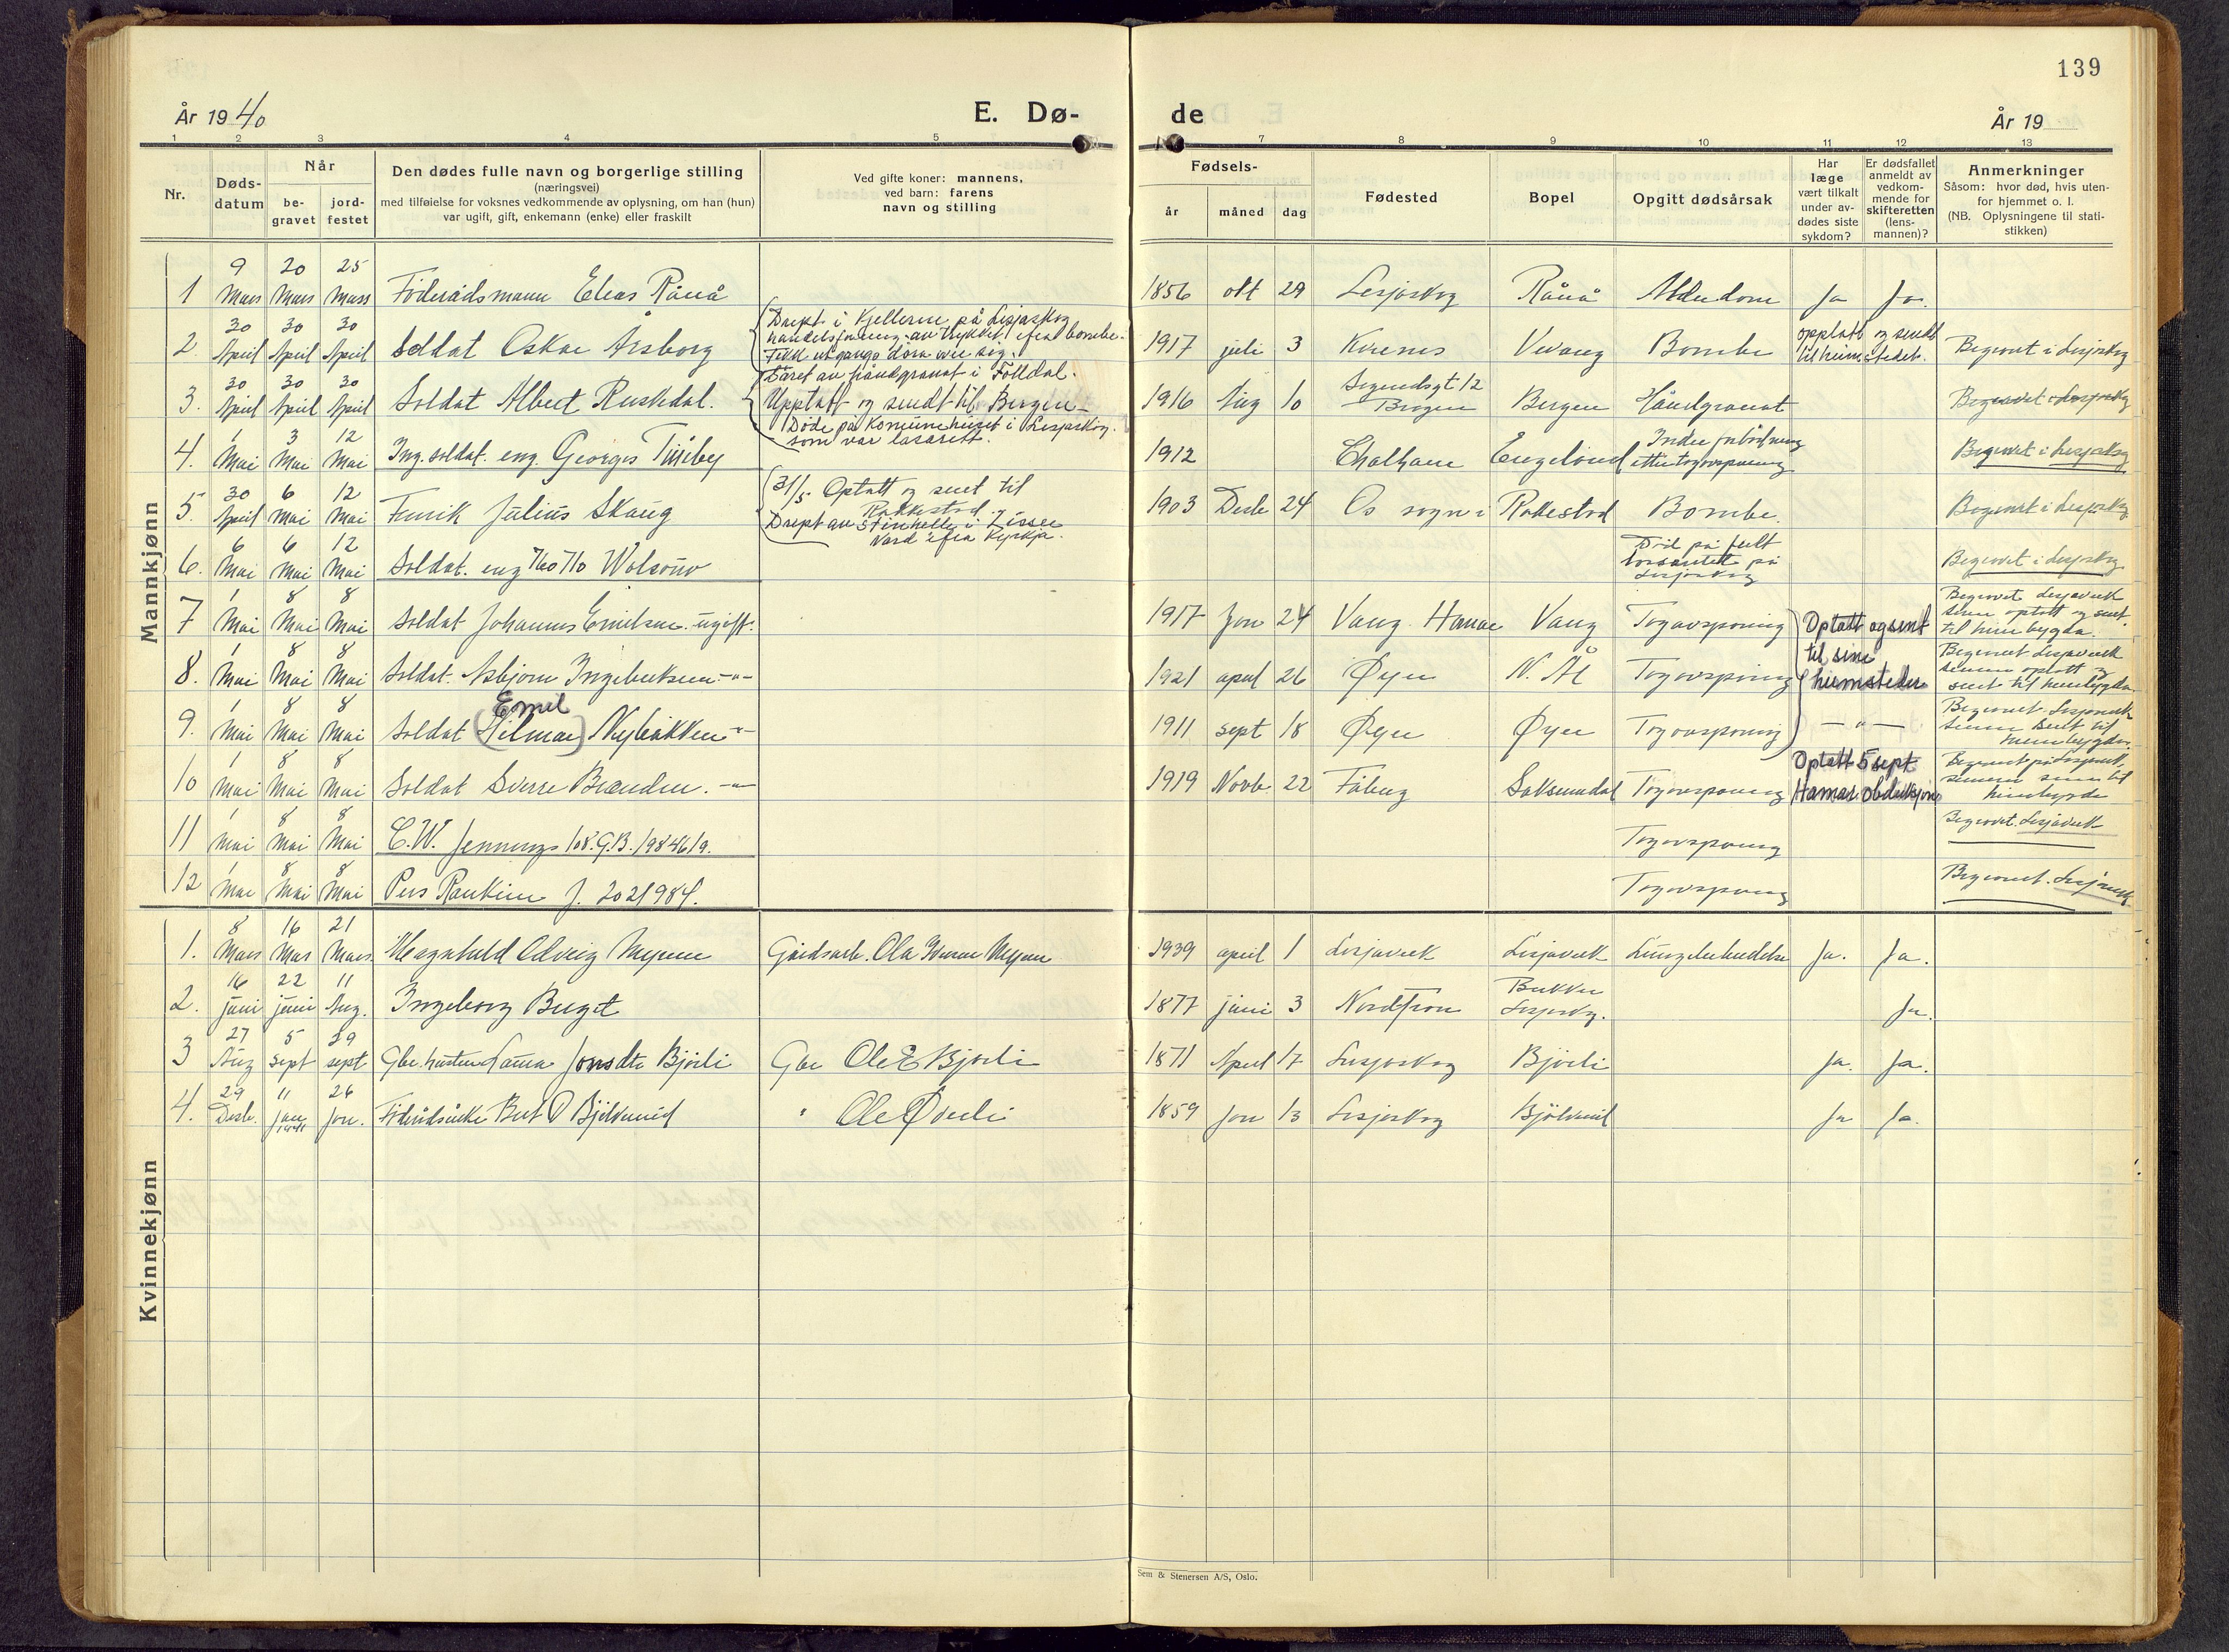 139
År 1940
E. Dø-
de
År 19
1 2 3 4 5 7 8 9 10 11 12 13
Nr.
Døds-
datum
Når
be-
gravet
jord-
festet
Den dødes fulle navn og borgerlige stilling
(næringsvei)
med tilføielse for voksnes vedkommende av oplysning, om han (hun)
var ugift, gift, enkemann (enke) eller fraskilt
Ved gifte koner: mannens,
ved barn: farens
navn og stilling
Fødsels-
år måned dag
Fødested
Bopel
Opgitt dødsårsak
Har
læge
vært tilkalt
under av-
dødes siste
sykdom?
Er dødsfallet
anmeldt av
vedkom-
mende for
skifteretten
(lens-
mannen)?
Anmerkninger
Såsom: hvor død, hvis uten-
for hjemmet o. l.
(NB. Oplysningene til stati-
stikken)
Mannkjønn
1 9 Mars 20 Mars 25 Mars Föderådsmann Elias Rånå 1856 okt 29 Lesjaskog Rånå Alderdom Ja Ja.
2 30 April 30 April 30 April Soldat Oskar Årsborg
Drept i Kjelleren på Lesjaskog
handelsforening av trykket efra bombe.
Fekk utgangs döra over seg.
1917 juli 3 Kvernes Vevang Bombe opptatt og sendt til heimstedet. Begravet i Lesjaskog
3. 30 April 30 April 30 April Soldat Albert Ruskdal.
Såret av håndgranat i Folldal.
Upptatt og sendt til Bergen
Döde på Kommunehuset i Lesjaskog.
som var lasarett.
1916 Aug 10 12 Bergen Bergen Håndgranat Begravet i Lesjaskog
4. 1 Mai 3 Mai 12 Mai Ing. soldat. eng. Georges 1912 Chatham Engeland Indre etter togavsporing Begravet i Lesjaskog
5. 30 April 6 Mai 12 Mai Fenrik Julius Skaug
31/5 Optatt og sent til
Rakkestad
Drept av steinhelle i
Nord efra Kyrkja.
1903 Desb 24 Os sogn i Rakkestad Bombe. Begravet i Lesjaskog
6. 6 Mai 6 Mai 12 Mai Soldat. eng Död på felt lassarettet på Lesjaskog Begravet i Lesjaskog
7 1 Mai 8 Mai 8 Mai Soldat Johannes Emilsen. ugift. 1917 Jan 24 Vang Hamar Vang Togavsporing Begravet Lesjaverk senere optatt og sent til heimbygda.
Optatt og sent
til sine
heimsteder
8. 1 Mai 8 Mai 8 Mai Soldat. Asbjörn Ingebretsen -"- 1921 april 26 Øyer N. Ål Togavsporing Begravet Lesjaverk senere optatt og sent til heimbygda
9. 1 Mai 8 Mai 8 Mai Soldat Emil (Hilmar) Nybakken -"- 1911 sept 18 Øyer Øyer Togavsporing -"- Begravet Lesjaverk senere sent til heimbygda.
10 1 Mai 8 Mai 8 Mai Soldat Sverre Brænden. -"- 1919 Novb. 22 Fåberg Saksumdal Togavsporing Optatt 5 sept Hamar obduksjon Begravet på Lesjaverk, senere til heimbygda
11 1 Mai 8 Mai 8 Mai C.W. Jennings 108. G.B. 198461a. Togavsporing Begravet. Lesjaverk
12 1 Mai 8 Mai 8 Mai Pvs Rankine J. 2021984. Togavsporing Begravet. Lesjaverk
Kvinnekjønn
1. 8 Mars 16 Mars 21 Mars. Magnhild Olveig Myren Gårdsarb. Ola Myren 1939 april 1 Lesjaverk Lesjaverk Lungebetendelse Ja. Ja.
2. 16 juni 22 juni 11 Aug. Ingeborg 1877 juni 3 Nordfron Lesjaskog. Ja.
3 27 Aug 5 sept 29 sept Gbr. hustru Jonsdtr Bjorli Gbr Ole E Bjorli 1871 April 17 Lesjaskog Bjorli Ja. Ja.
4. 29 Desb. 11 jan 1941 26 Jan. Föderådsenke O Bjölverud " Ole Øverli 1859 Jan 13 Lesjaskog Bjölverud Ja Ja.
Sem & Stenersen A/S, Oslo.